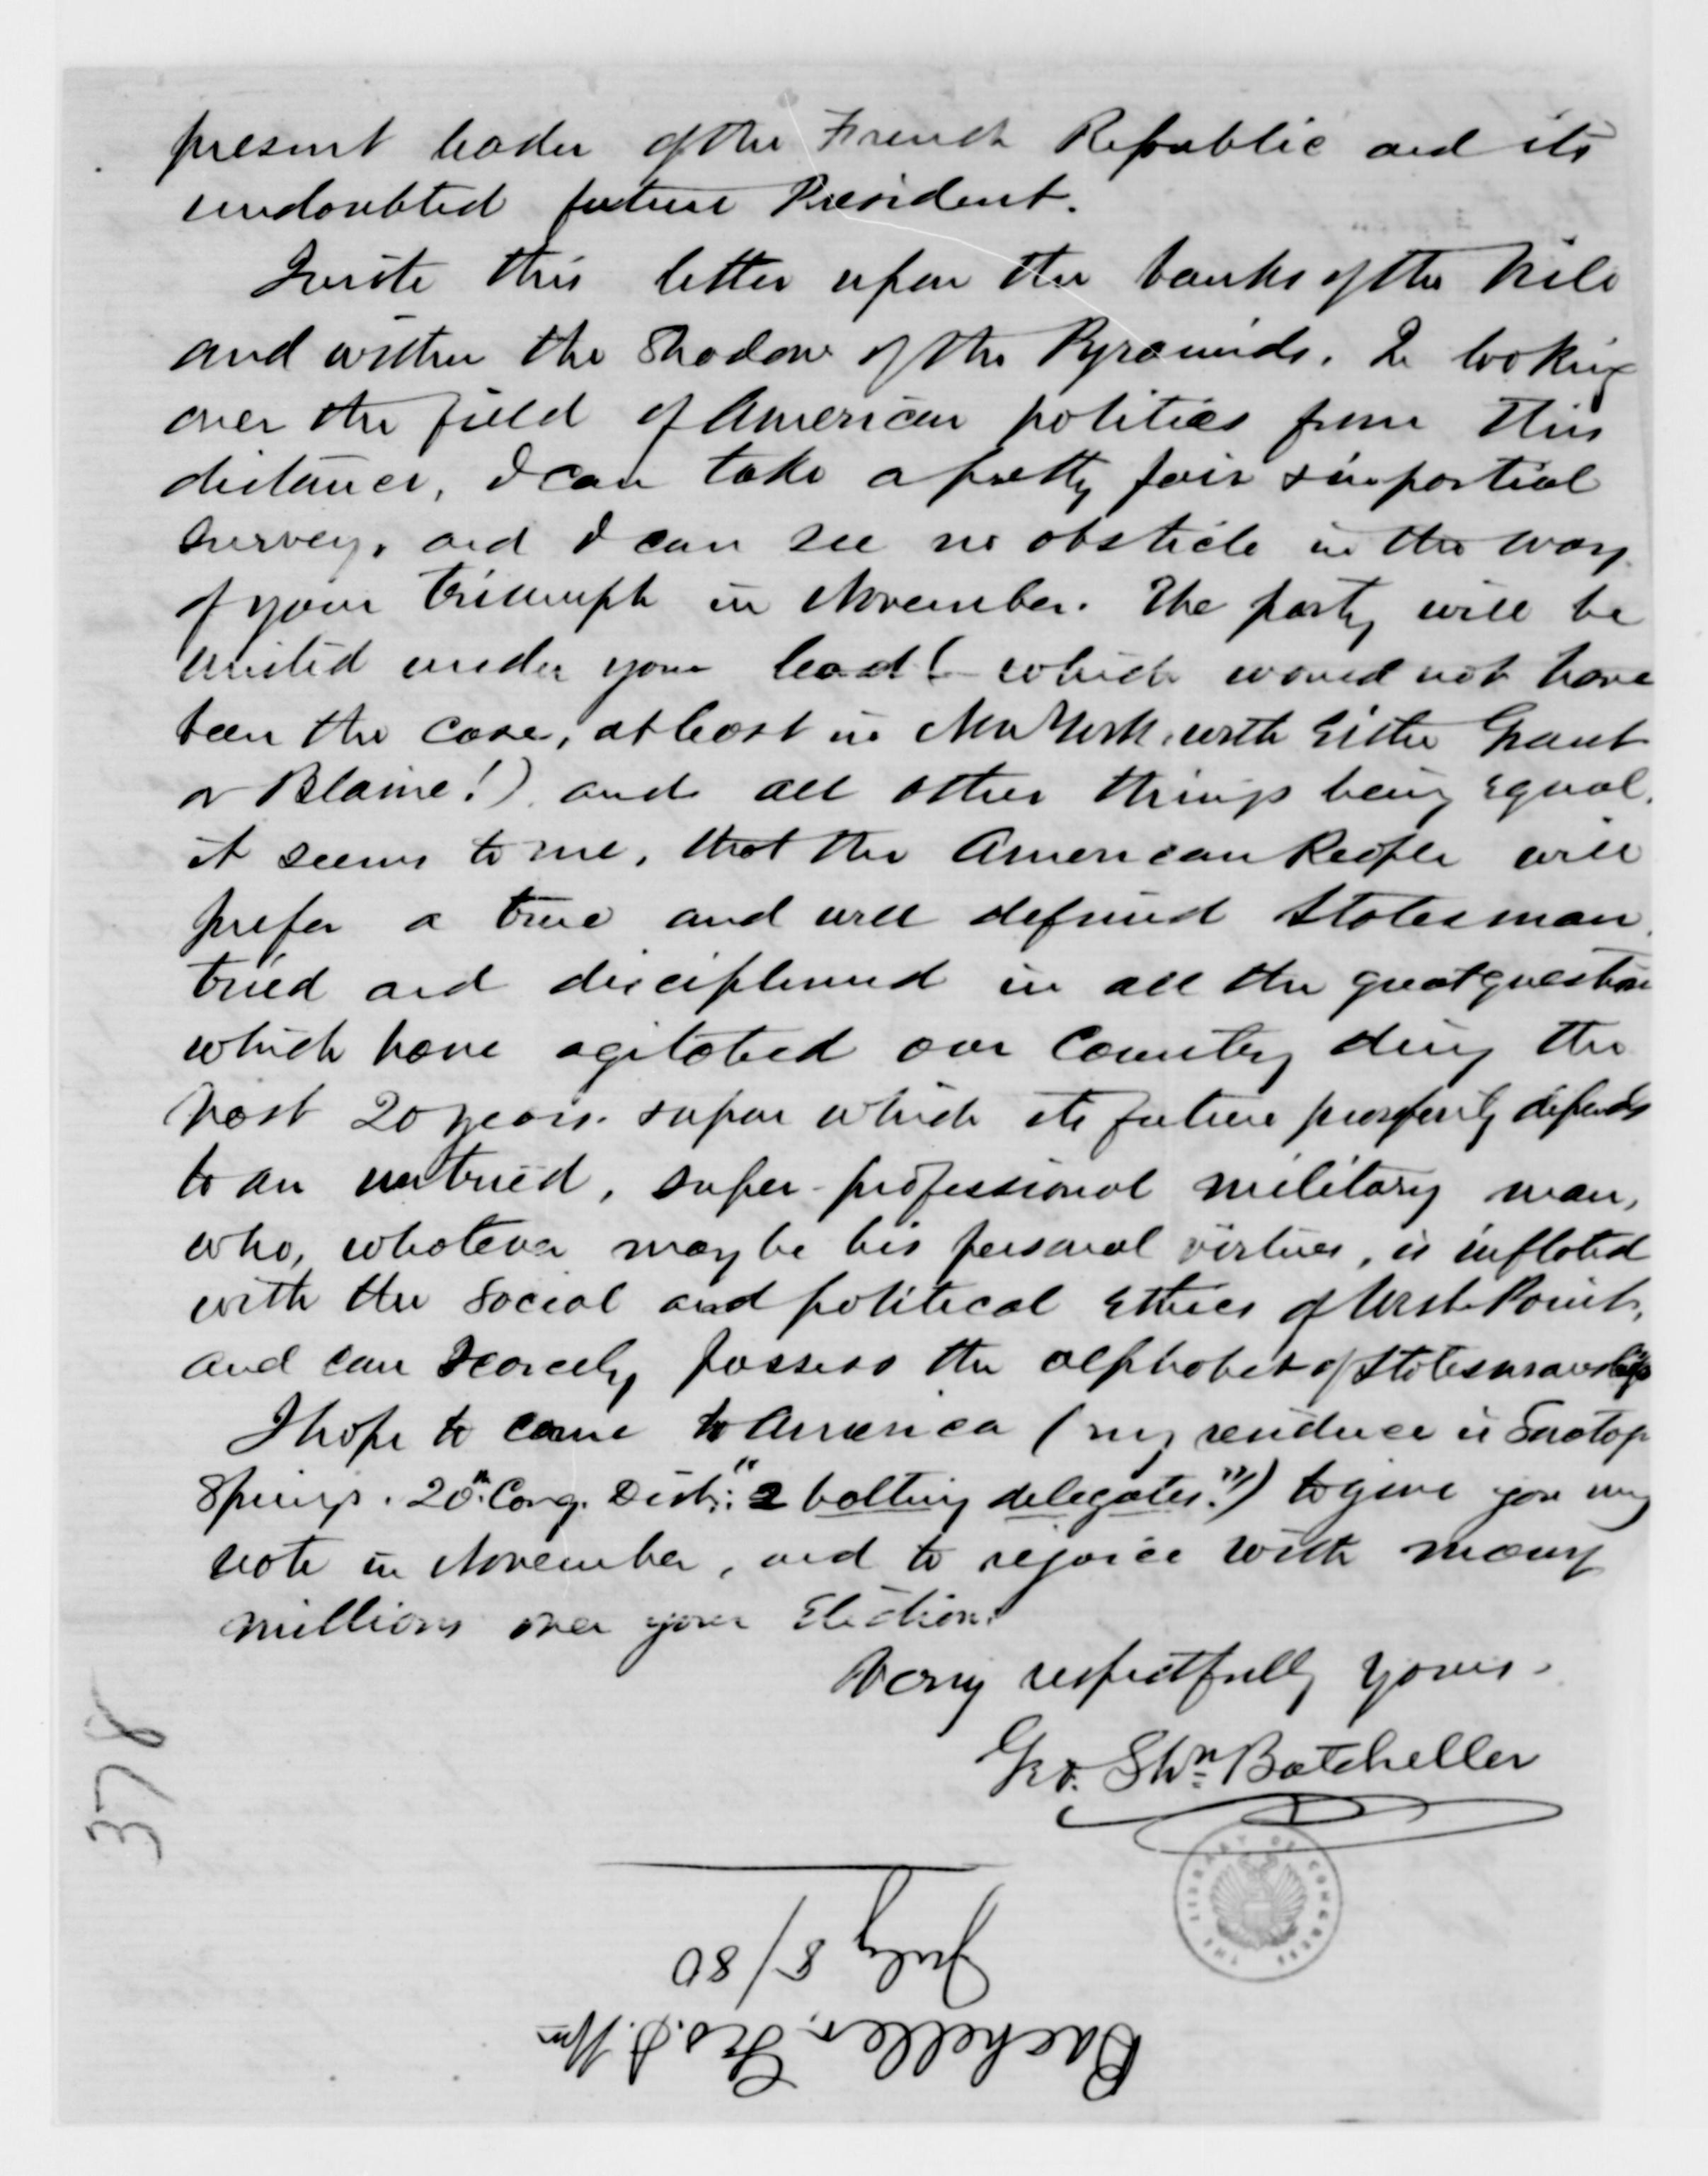 present leader of the French Republic and its
undoubted future President.
I write this letter upon the banks of the Nile
and within the Shadow of the Pyramids. In looking
over the field of American politics from this
distance, I can take a pretty fair & impartial
survey, and I can see no obsticle in the way
of your triumph in November. The party will be
united under your lead (which would not have
been the case, at least in New York, with Either Grant
or Blaine!) and all other things being Equal,
it seems to me, that the American People will
prefer a true and well defined Statesman,
tried and disciplined in all the great questions
which have agitated our Country ding the
past 20 years. & upon which its future prosperity depends
to an untried, super-professional military man,
who, whatever may be his personal virtues, is inflated
with the Social and political Ethics of West Point,
and can scarcely possess the alphabet of Statesmanship
I hope to come to America (my residence is Saratoga
Springs. 20th Cong. Dist: "2 bolting delegates"!) to give you my
vote in November, and to rejoice with many
millions over your Election.
Very respectfully yours.
Geo. Shn Batcheller
378
THE LIBRARY OF CONGRESS
Bacheller, Geo. S. Wm
July 8/80